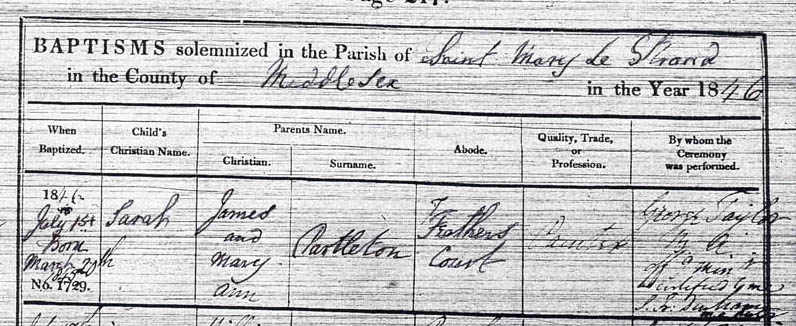 BAPTISMS solemnized in the Parish of Saint Mary Le Strand
in the County of Middlesex in the Year 1846
When Baptized. Child's Christian Name. Parents Name. Abode. Quality, Trade, or Profession. By whom the Ceremony was performed.
Christian. Surname.
1846
July 1st
Born
March 20th
No. 1729.
Sarah
James
and
Mary
Ann
Partleton
7
Feathers
Court
Painter
George Taylor